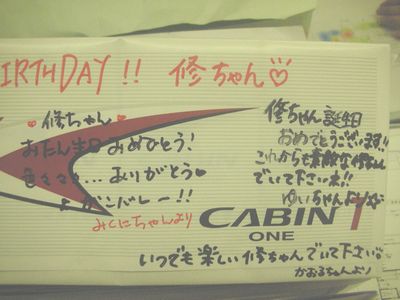 IRTHDAY!! 修ちゃん♡
♥修ちゃん♥
おたん生日おめでとう!
色々々々…ありがとう♥
とガンバレー!!
みくにちゃんより
修ちゃん誕生日
おめでとうございます!!
これからも素敵な修ちゃん
でいて下さいネ!!
ゆいちゃんより☆
CABIN 1
ONE
いつでも楽しい修ちゃんでいて下さい。
かおるちゃんより